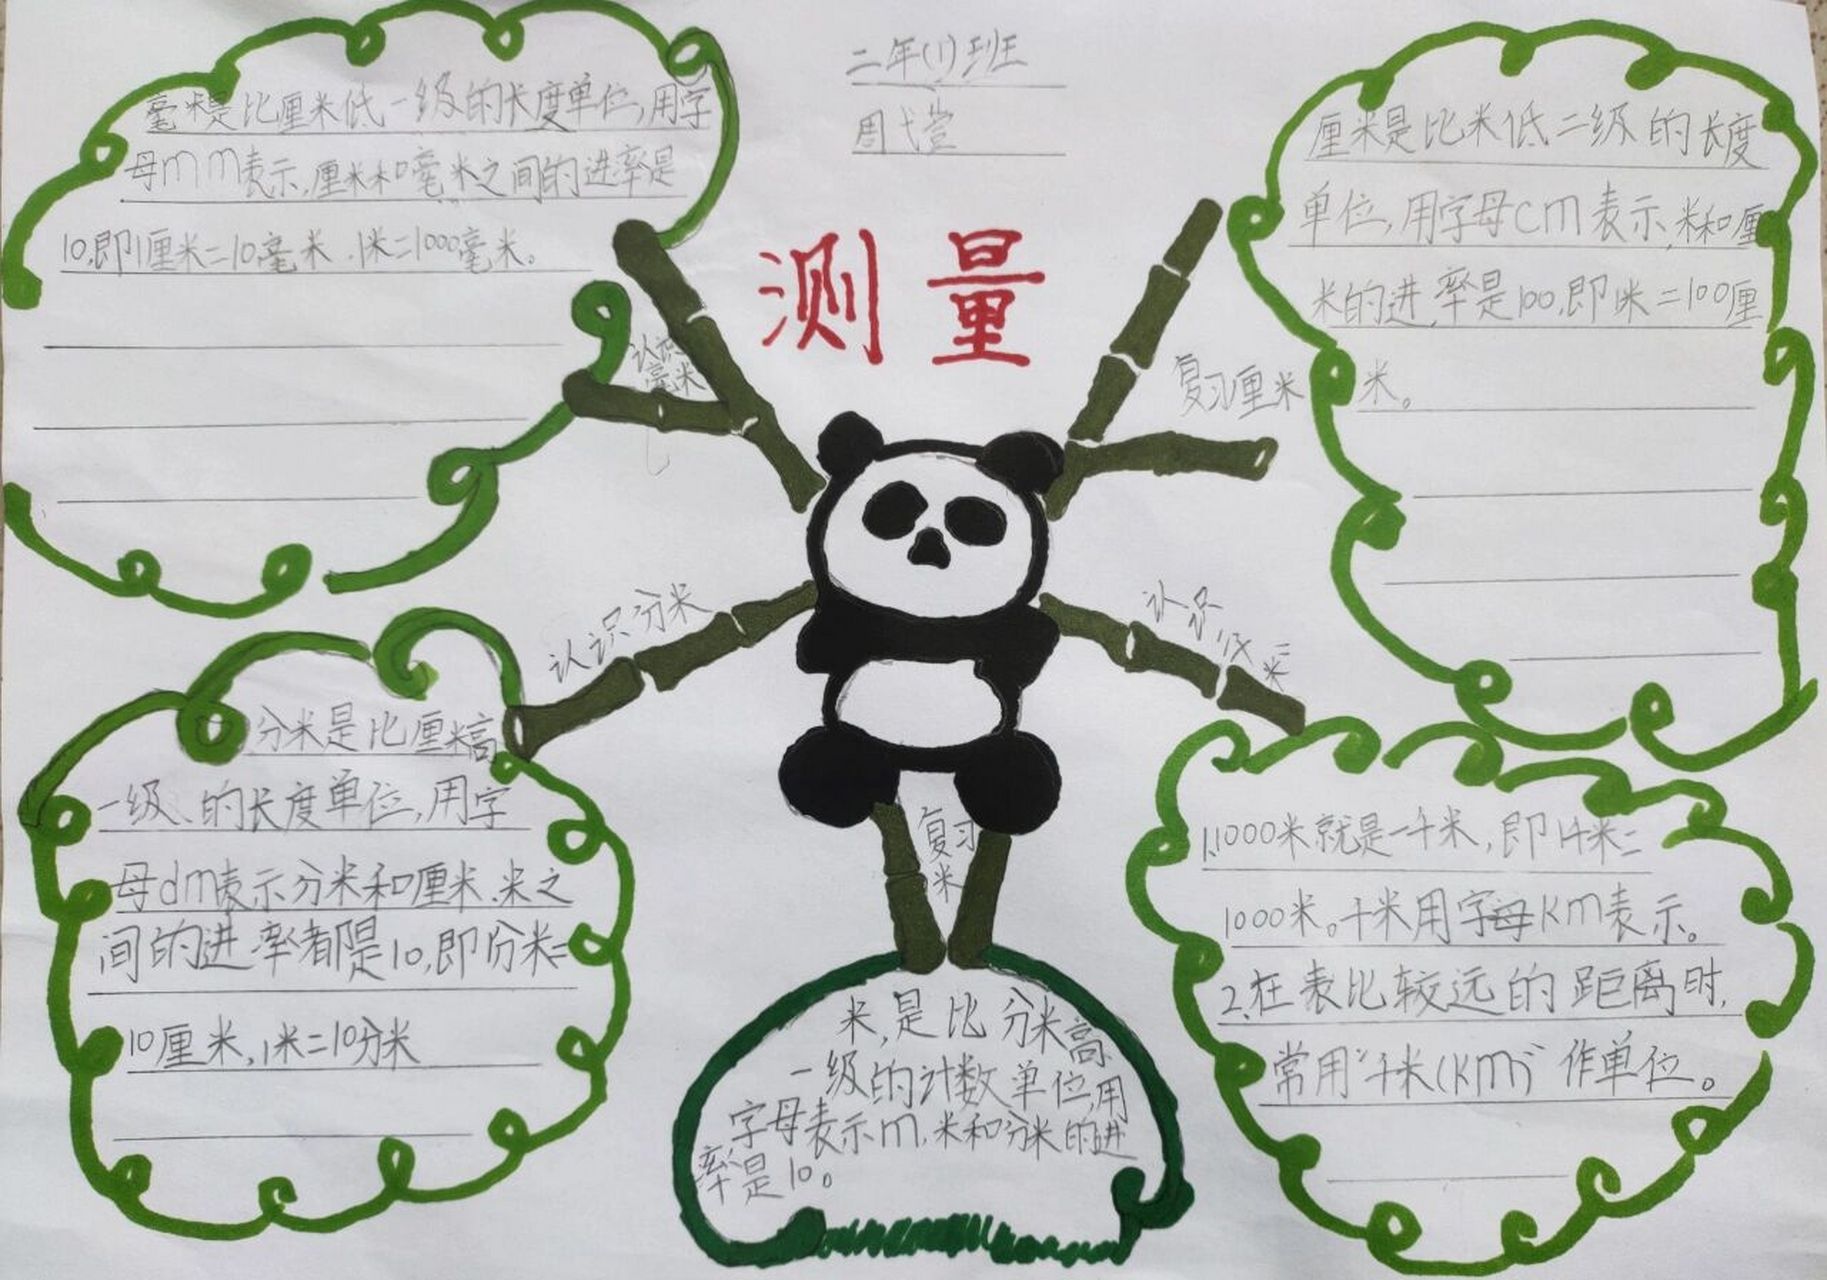 二年(1)班
周弋萱
测量
毫米是比厘米低一级的长度单位,用字
母mm表示,厘米和毫米之间的进率是
10,即1厘米=10毫米.1米=1000毫米。
认识
毫米
厘米是比米低二级的长度
单位,用字母cm表示,米和厘
米的进率是100,即1米=100厘
米。
复习厘米
认识分米
分米是比厘米高
一级、的长度单位,用字
母dm表示分米和厘米.米之
间的进率都是10,即1分米=
10厘米,1米=10分米
复习
米
米,是比分米高
一级的计数单位,用
字母表示m,米和分米的进
率是10。
认识
米
1.1000米就是一千米,即1千米=
1000米。千米用字母km表示。
2.在表比较远的距离时,
常用“千米(km)”作单位。